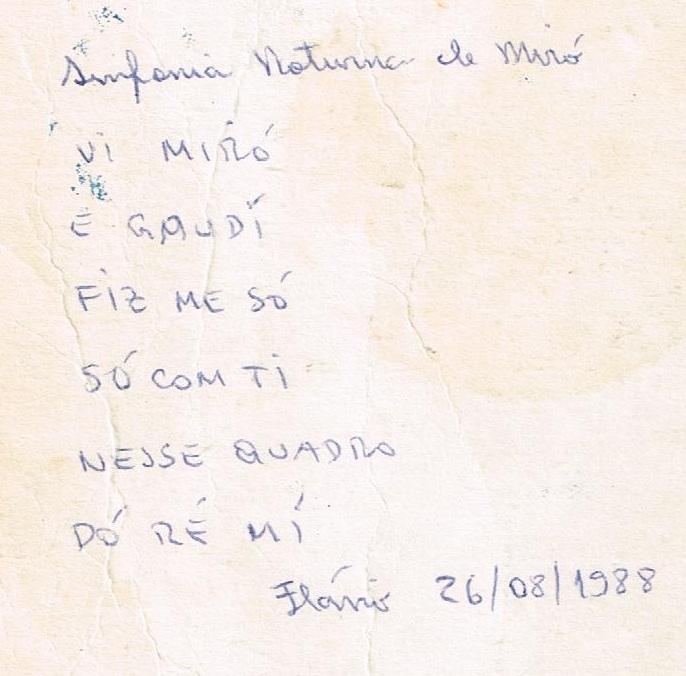 Sinfonia Noturna de Miró
Vi MIRÓ
E GAUDÍ
FIZ ME SÓ
SÓ COM TI
NESSE QUADRO
DÓ RÉ MÍ
Flávio 26/08/1988